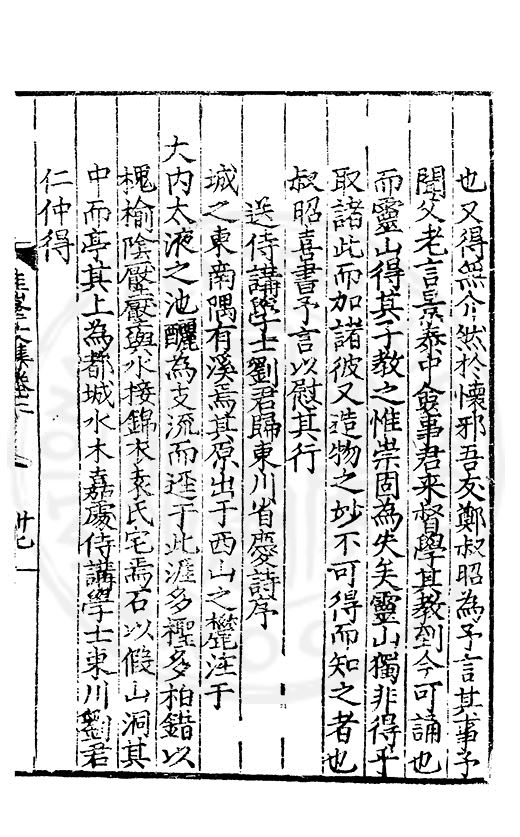 也又得無介然於懷邪吾友鄭叔昭為予言其事予
聞父老言景泰中僉事君来督學其教到今可誦也
而靈山得其子教之惟崇固為失矣靈山獨非得乎
取諸此而加諸彼又造物之妙不可得而知之者也
叔昭喜書予言以慰其行
送侍講學士劉君歸東川省慶詩序
城之東南隅有溪焉其原出于西山之麓注于
大内太液之池釃為支流而逕于此涯多檉多柏錯以
槐榆陰壓壓與水接錦衣袁氏宅焉石以假山洞其
中而亭其上為都城水木嘉處侍講學士東川劉君
仁仲得
文集卷二
卄七